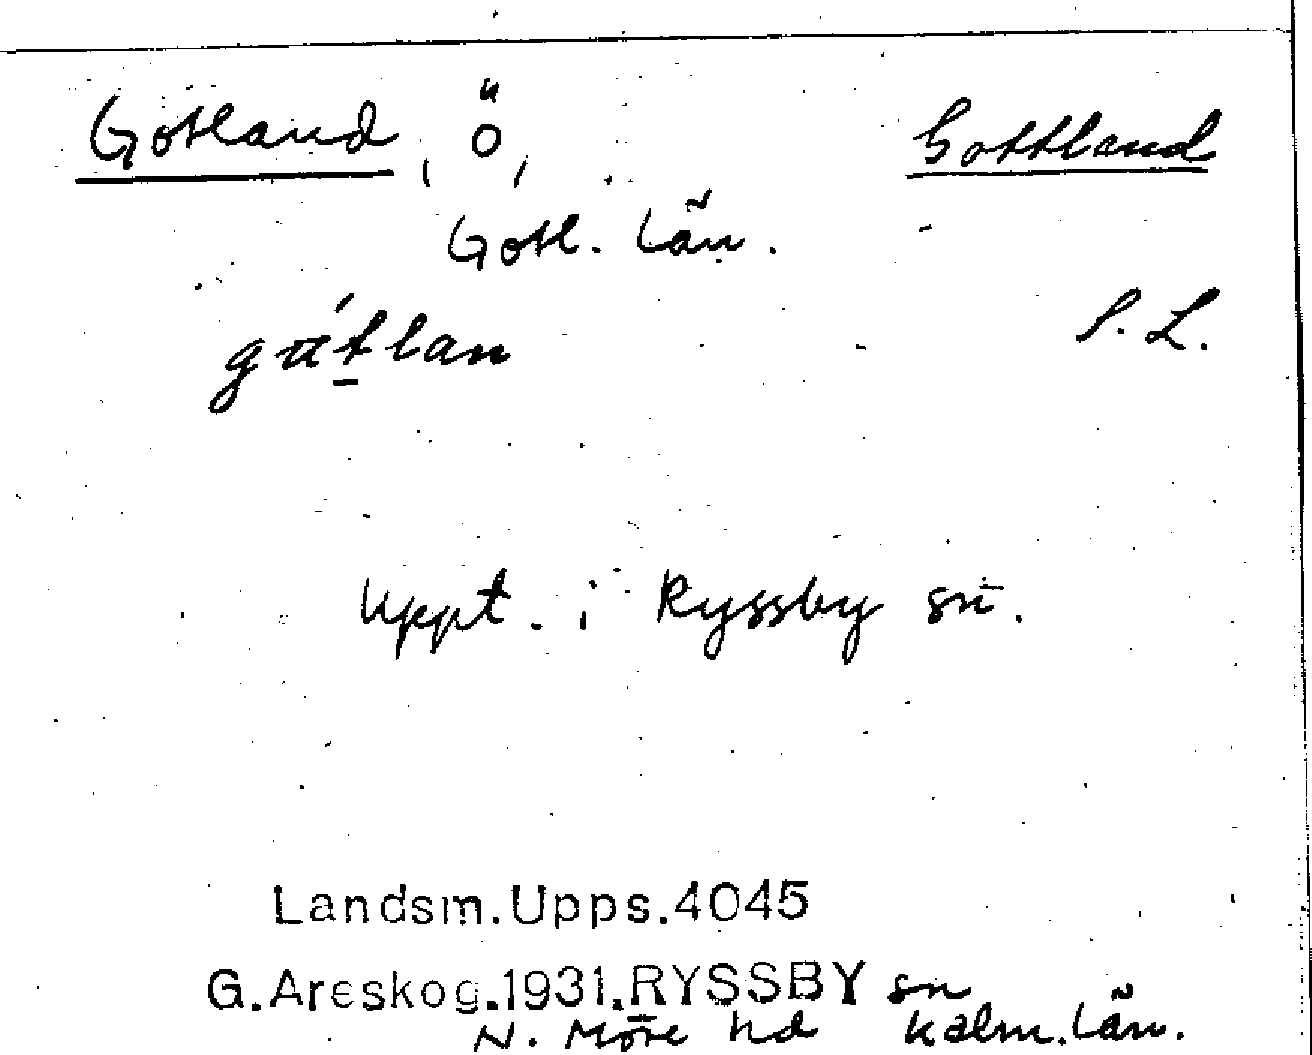 Gotland, ö, Gottland
Gotl. län.
gu̇́tlan S. L.
Uppt. i Ryssby sn.
Landsm.Upps.4045
G.Areskog.1931.RYSSBY sn
N. Möre hd Kalm. län.